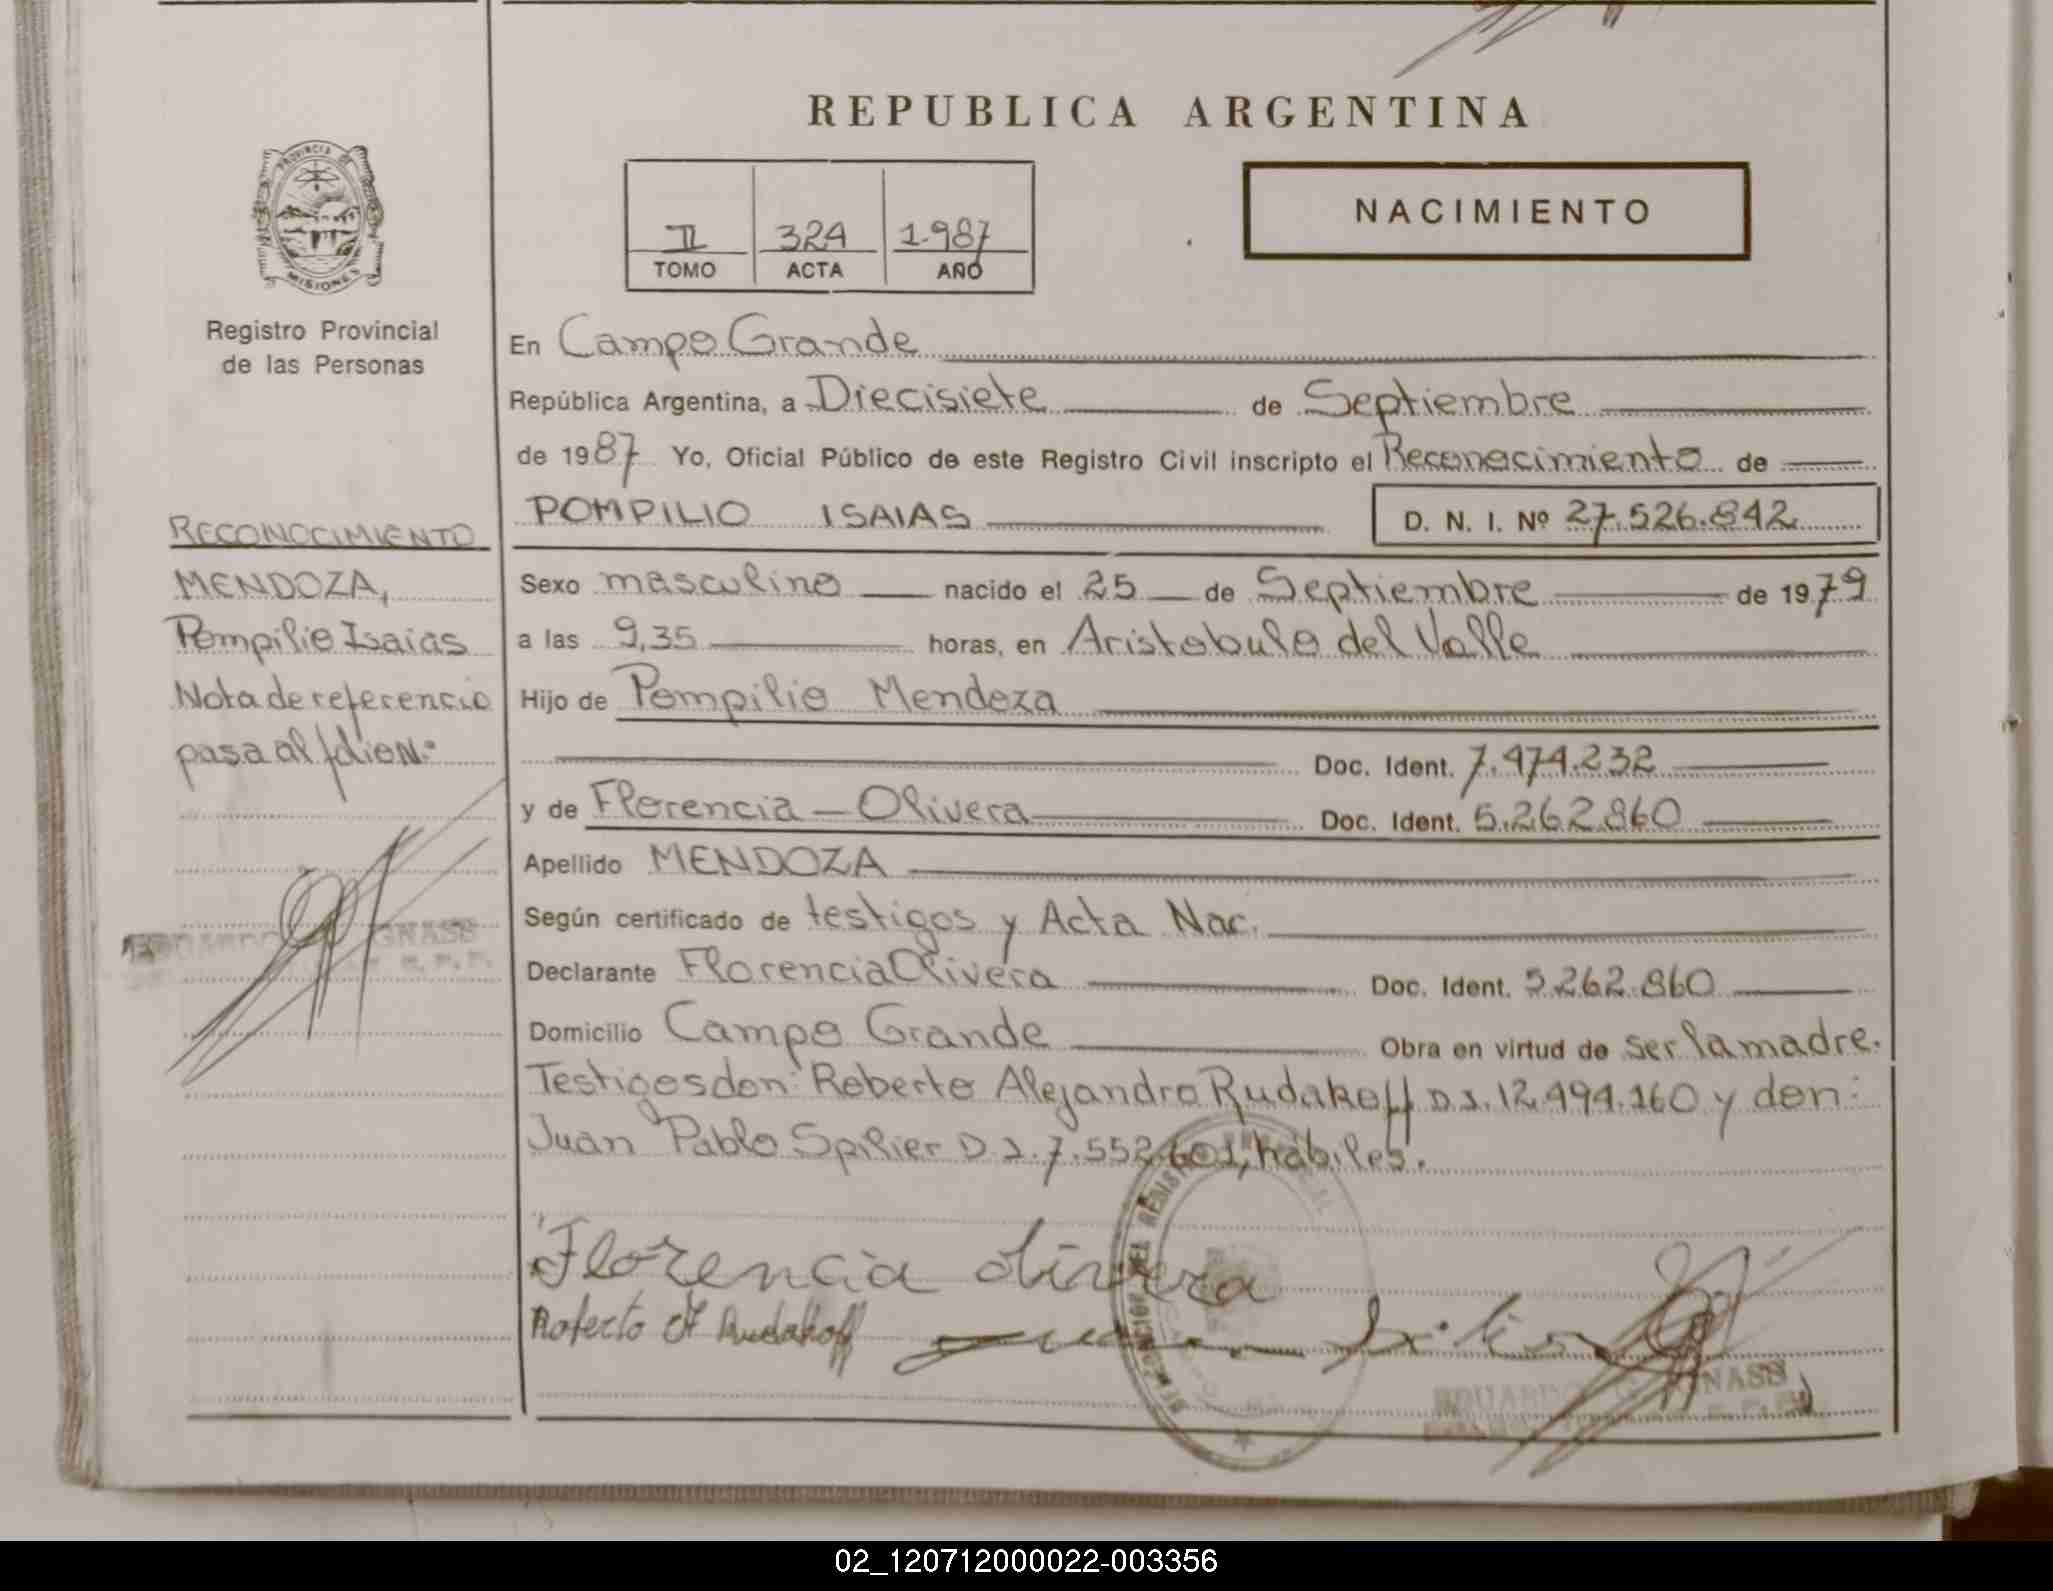 REPUBLICA ARGENTINA
PROVINCIA DE
MISIONES
Registro Provincial
de las Personas
II 324 1.987
TOMO ACTA AÑO
NACIMIENTO
En Campo Grande
República Argentina, a Diecisiete de Septiembre
de 1987 Yo, Oficial Público de este Registro Civil inscripto el Reconocimiento de
POMPILIO ISAIAS D. N. I. Nº 27.526.842
Sexo masculino nacido el 25 de Septiembre de 1979
a las 9,35 horas, en Aristobulo del Valle
Hijo de Pompilio Mendoza
Doc. Ident. 7.474.232
y de Florencia - Olivera Doc. Ident. 5.262.860
Apellido MENDOZA
Según certificado de testigos y Acta Nac.
Declarante Florencia Olivera Doc. Ident. 5.262.860
Domicilio Campo Grande Obra en virtud de ser la madre.
Testigos don: Roberto Alejandro Rudakoff D.I. 12.494.160 y don:
Juan Pablo Spilier D.I. 7.552.601, habiles.
Florencia Olivera
Roberto A Rudakoff
RECONOCIMIENTO
MENDOZA,
Pompilio Isaias
Nota de referencia
pasa al folio N.º
02_120712000022-003356